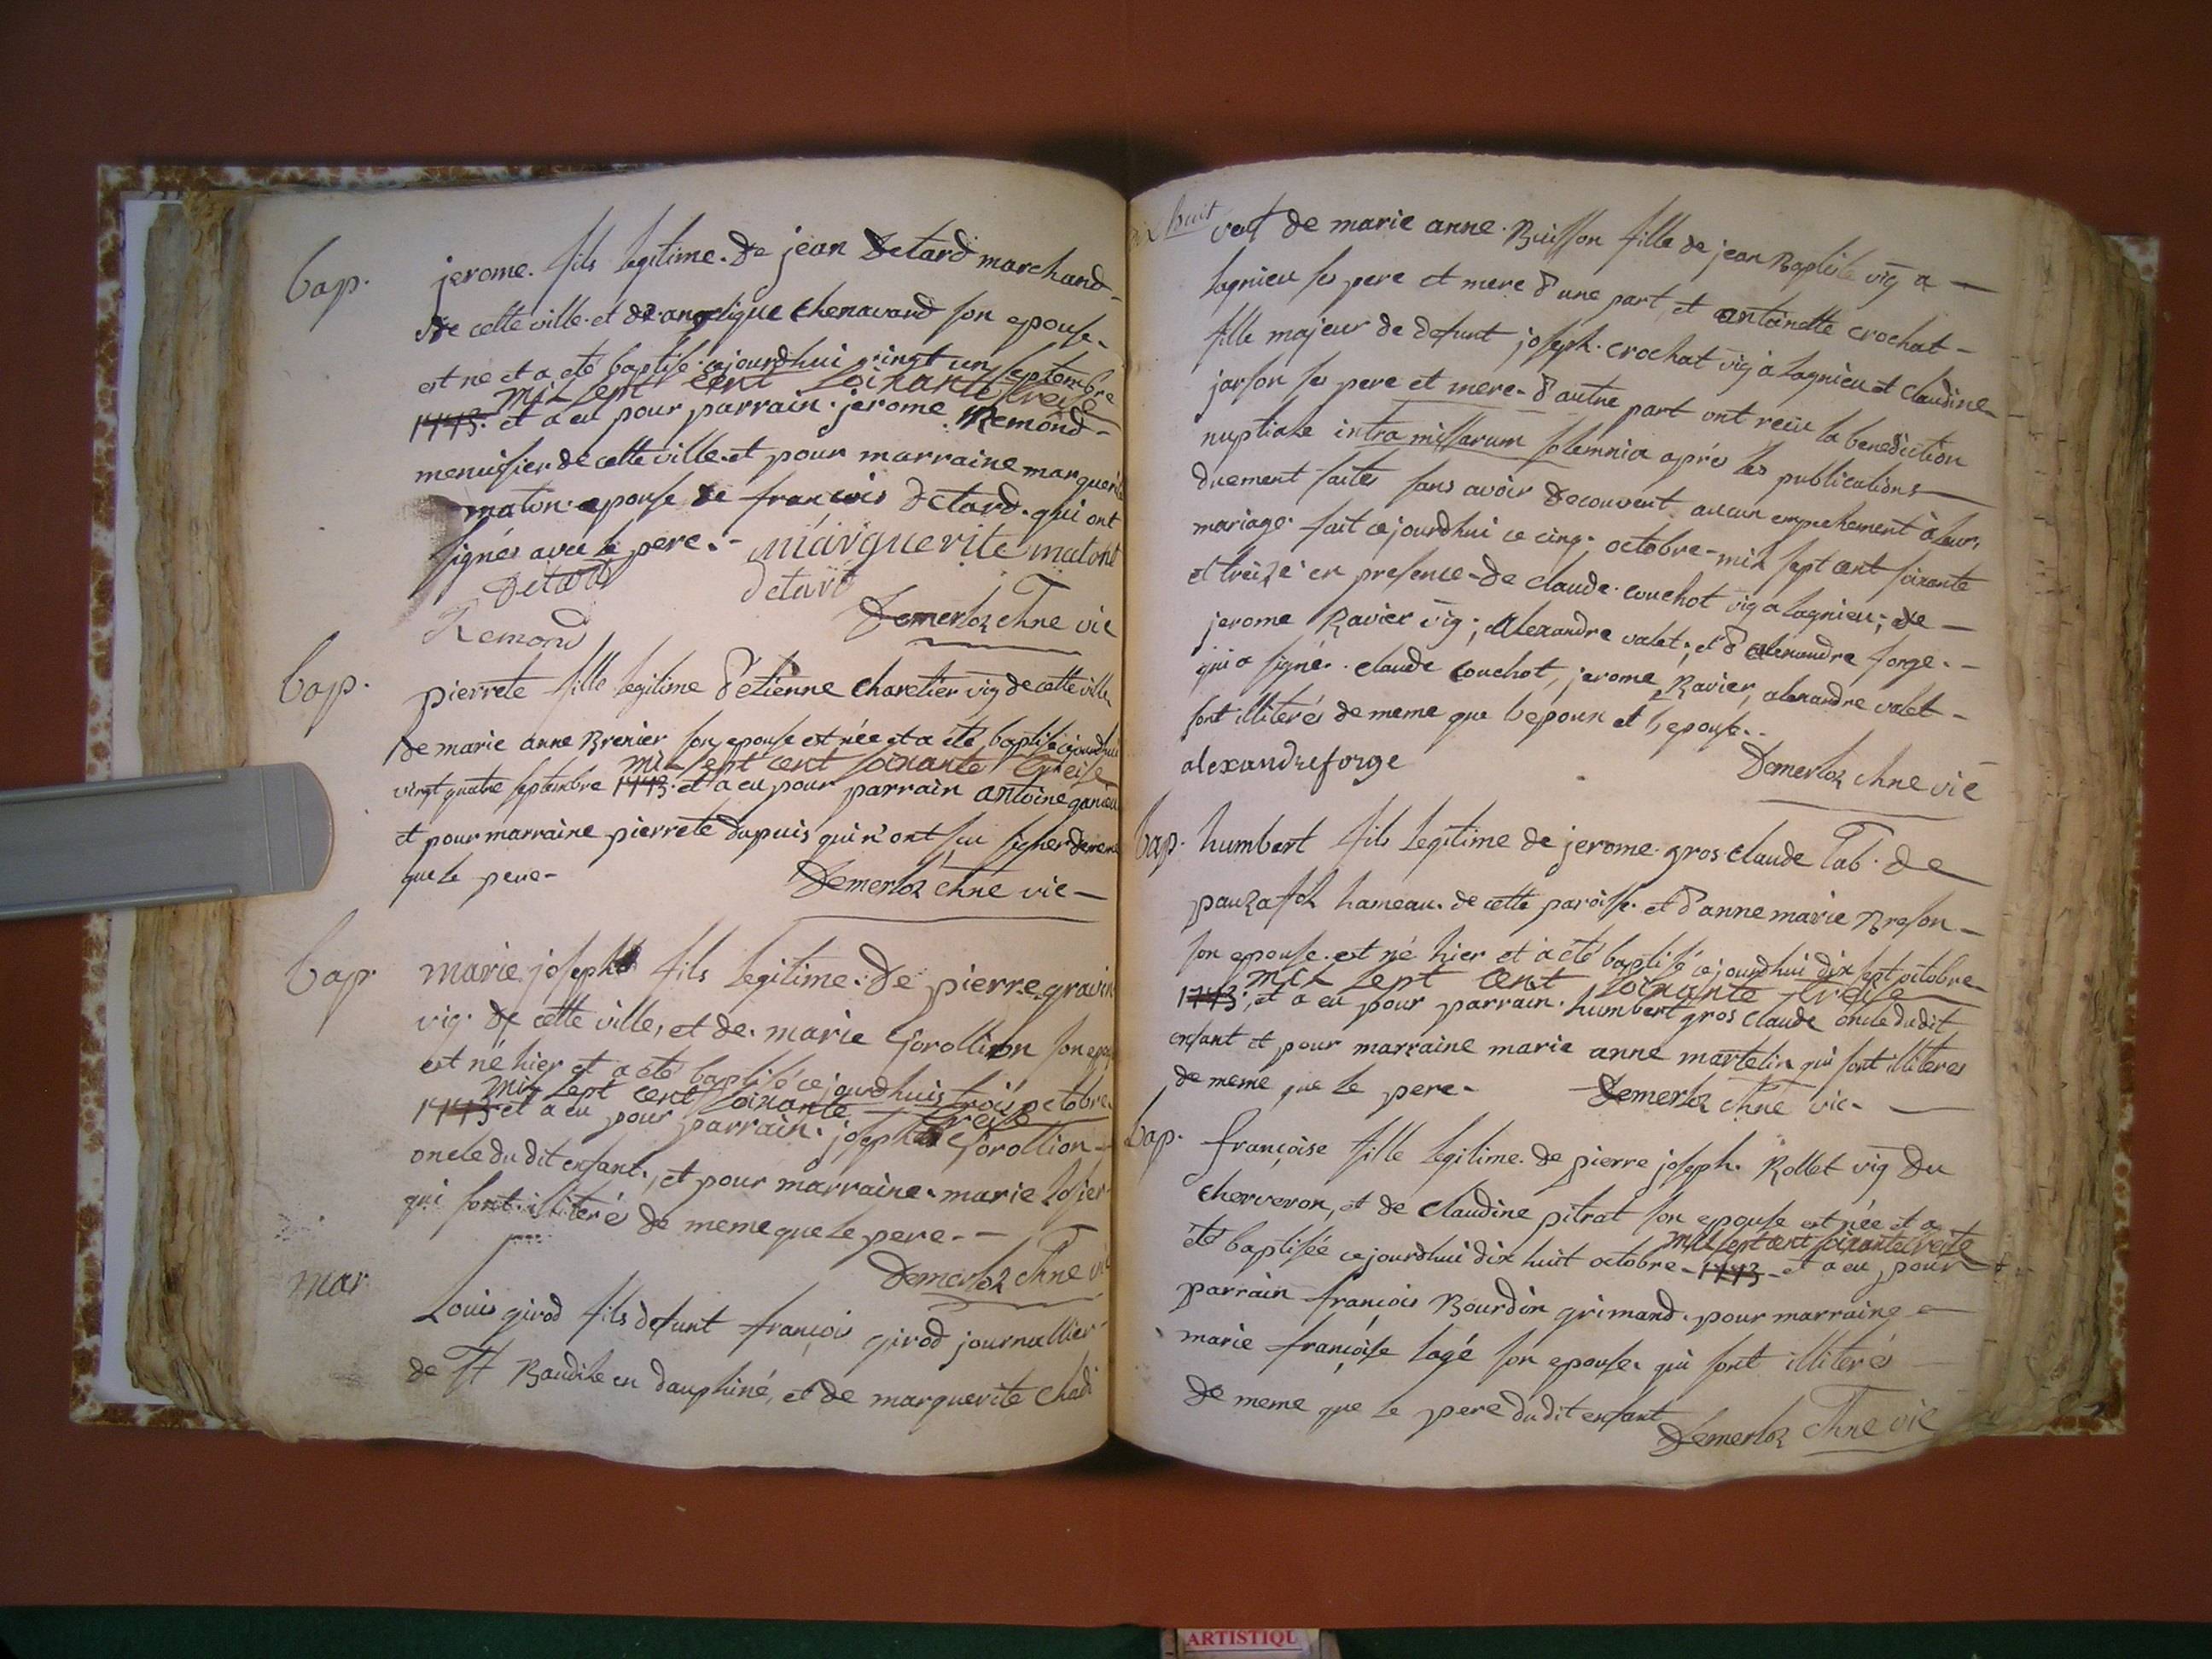 bap.
jerome. fils legitime. de jean Detard marchand
de cette ville. et de angelique chenavard son epouse.
est ne et a eté baptisé. cejourdhui vingt un septembre
mil sept cent soixante treise
1773. et a eu pour parrain. jerome Remond
menuisier de cette ville. et pour marraine marguerite
maton epouse de francois detard. qui ont
signés avec le pere. marguerite matont
Detard detard
Remond Demerloz chne vic
bap.
pierrete fille legitime d'etienne charetier vig de cette ville
de marie anne Brenier son epouse est née et a eté baptisé cejourdhui
mil sept cent soixante treise
vingt quatre septembre 1773. et a eu pour parrain antoine
et pour marraine pierrete dupuis qui n'ont su signer de meme
que le pere. Demerloz chne vic
bap
marie joseph fils legitime. de pierre gravin
vig. de cette ville, et de. marie Gorollion son
est né hier et a été baptisé cejourdhuis trois octobre.
mil sept cent soixante treise
1773 et a eu pour parrain. joseph Gorollion
oncle du dit enfant., et pour marraine. marie
qui sont. illiterés de meme que le pere.
Demerloz chne vic
mar
Louis girod fils defunt françois girod journallier
de st Baudile en dauphiné, et de marguerite
dix huit
veuf de marie anne. Buisson fille de jean Baptiste vig a
lagnieu ses pere et mere d'une part, et antoinette crochat
fille majeur de defunt joseph. crochat vig à lagnieu et claudine
jarson ses pere et mere. d'autre part ont reçu la benediction
nuptiale intra missarum solemnia aprés les publications
duement faites sans avoir decouvert aucun empechement à leur
mariage. fait cejourdhui ce cinq. octobre. mil sept cent soixante
et treize en presence. de claude. couchot vig a lagnieu; de
jerome Ravier vig; alexandre valet; et d'alexandre forge.
qui a signé. claude couchot, jerome Ravier, alexandre valet
sont illiterés de meme que l'epoux et l'epouse.
alexandre forge Demerloz chne vic
bap.
humbert fils legitime de jerome. gros. claude lab. de
hameau. de cette paroisse. et d'anne marie Breson
son epouse. est né hier et a été baptisé cejourdhui dix sept octobre
mil sept cent soixante treise
1773. et a eu pour parrain. humbert gros claude oncle du dit
enfant et pour marraine marie anne martelin qui sont illiteres
de meme que le pere. Demerloz chne vic.
bap.
françoise fille legitime. de pierre joseph. Rollet vig du
cherveron, et de claudine pitrat son epouse est née et a
mil sept cent soixante treise
été baptisée cejourdhui dix huit octobre. 1773. et a eu pour
parrain françois Bourdin grimand. pour marraine
marie françoise logé son epouse. qui sont illiterés
de meme que le pere du dit enfant
Demerloz chne vic
ARTISTIQU